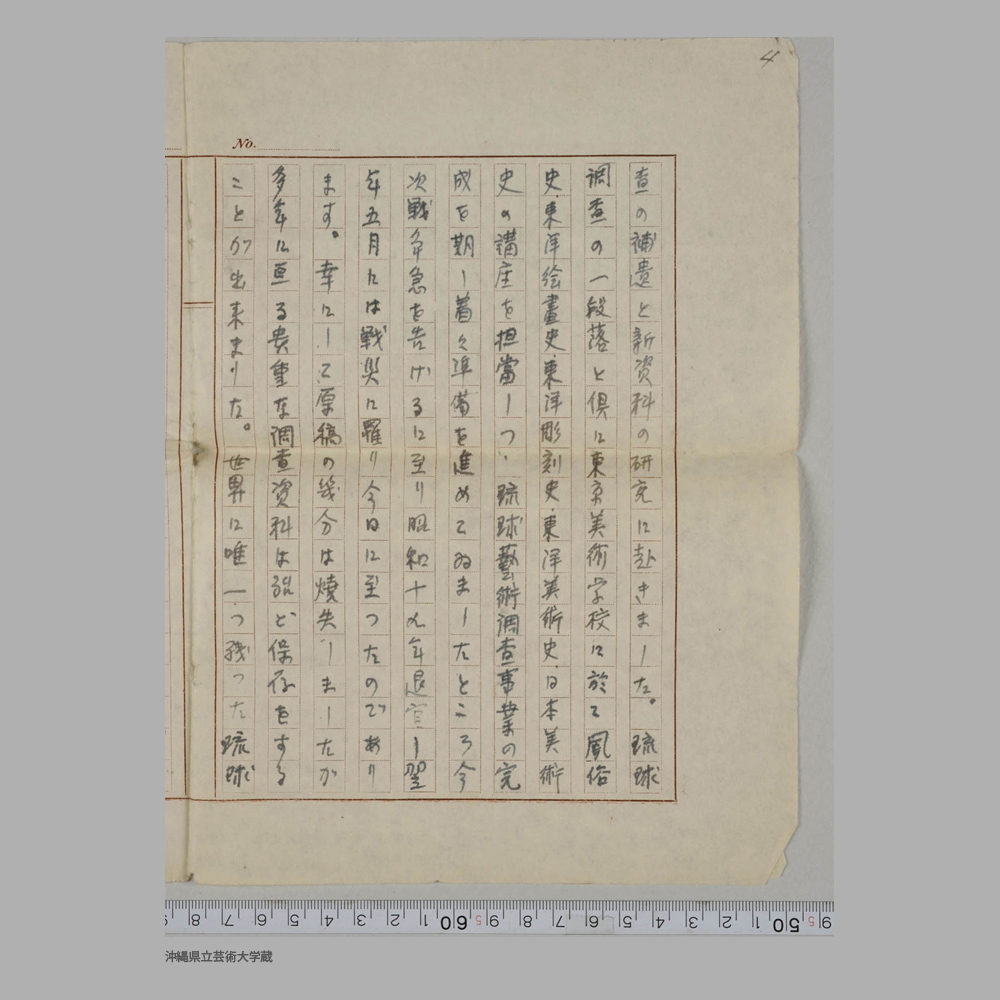 4
No.
査の補遺と新資料の研究に赴きました。琉球
調査の一段落と倶に東京美術学校に於て風俗
史・東洋絵畫史・東洋彫刻史・東洋美術史・日本美術
史の講座を担當しつゝ琉球藝術調査事業の完
成を期し着々準備を進めてゐましたところ今
次戦争急を告げるに至り昭和十九年退官し翌
年五月には戦災に罹り今日に至つたのであり
ます。幸にして原稿の幾分は焼失しましたが
多年に亘る貴重な調査資料は殆ど保存をする
ことが出来ました。世界に唯一つ残つた琉球
9 8 7 6 5 4 3 2 1 60 9 8 7 6 5 4 3 2 1 50 9
沖縄県立芸術大学蔵